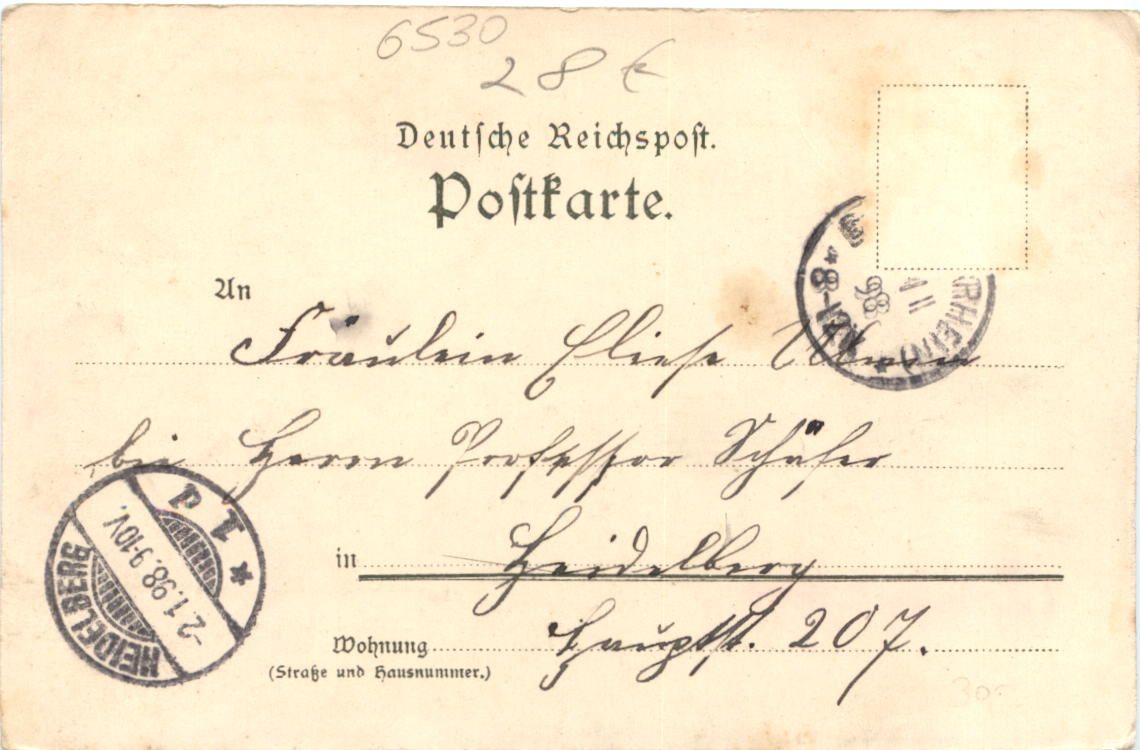 6530
28 €
Deutsche Reichspost.
Postkarte.
An
Fräulein Eliese
bei Herrn Professor Schäfer
in Heidelberg
Wohnung Hauptst. 207.
(Straße und Hausnummer.)
HEIDELBERG
-2.1.98.9-10V.
* 1 d
RHEIN) *
98
30.-